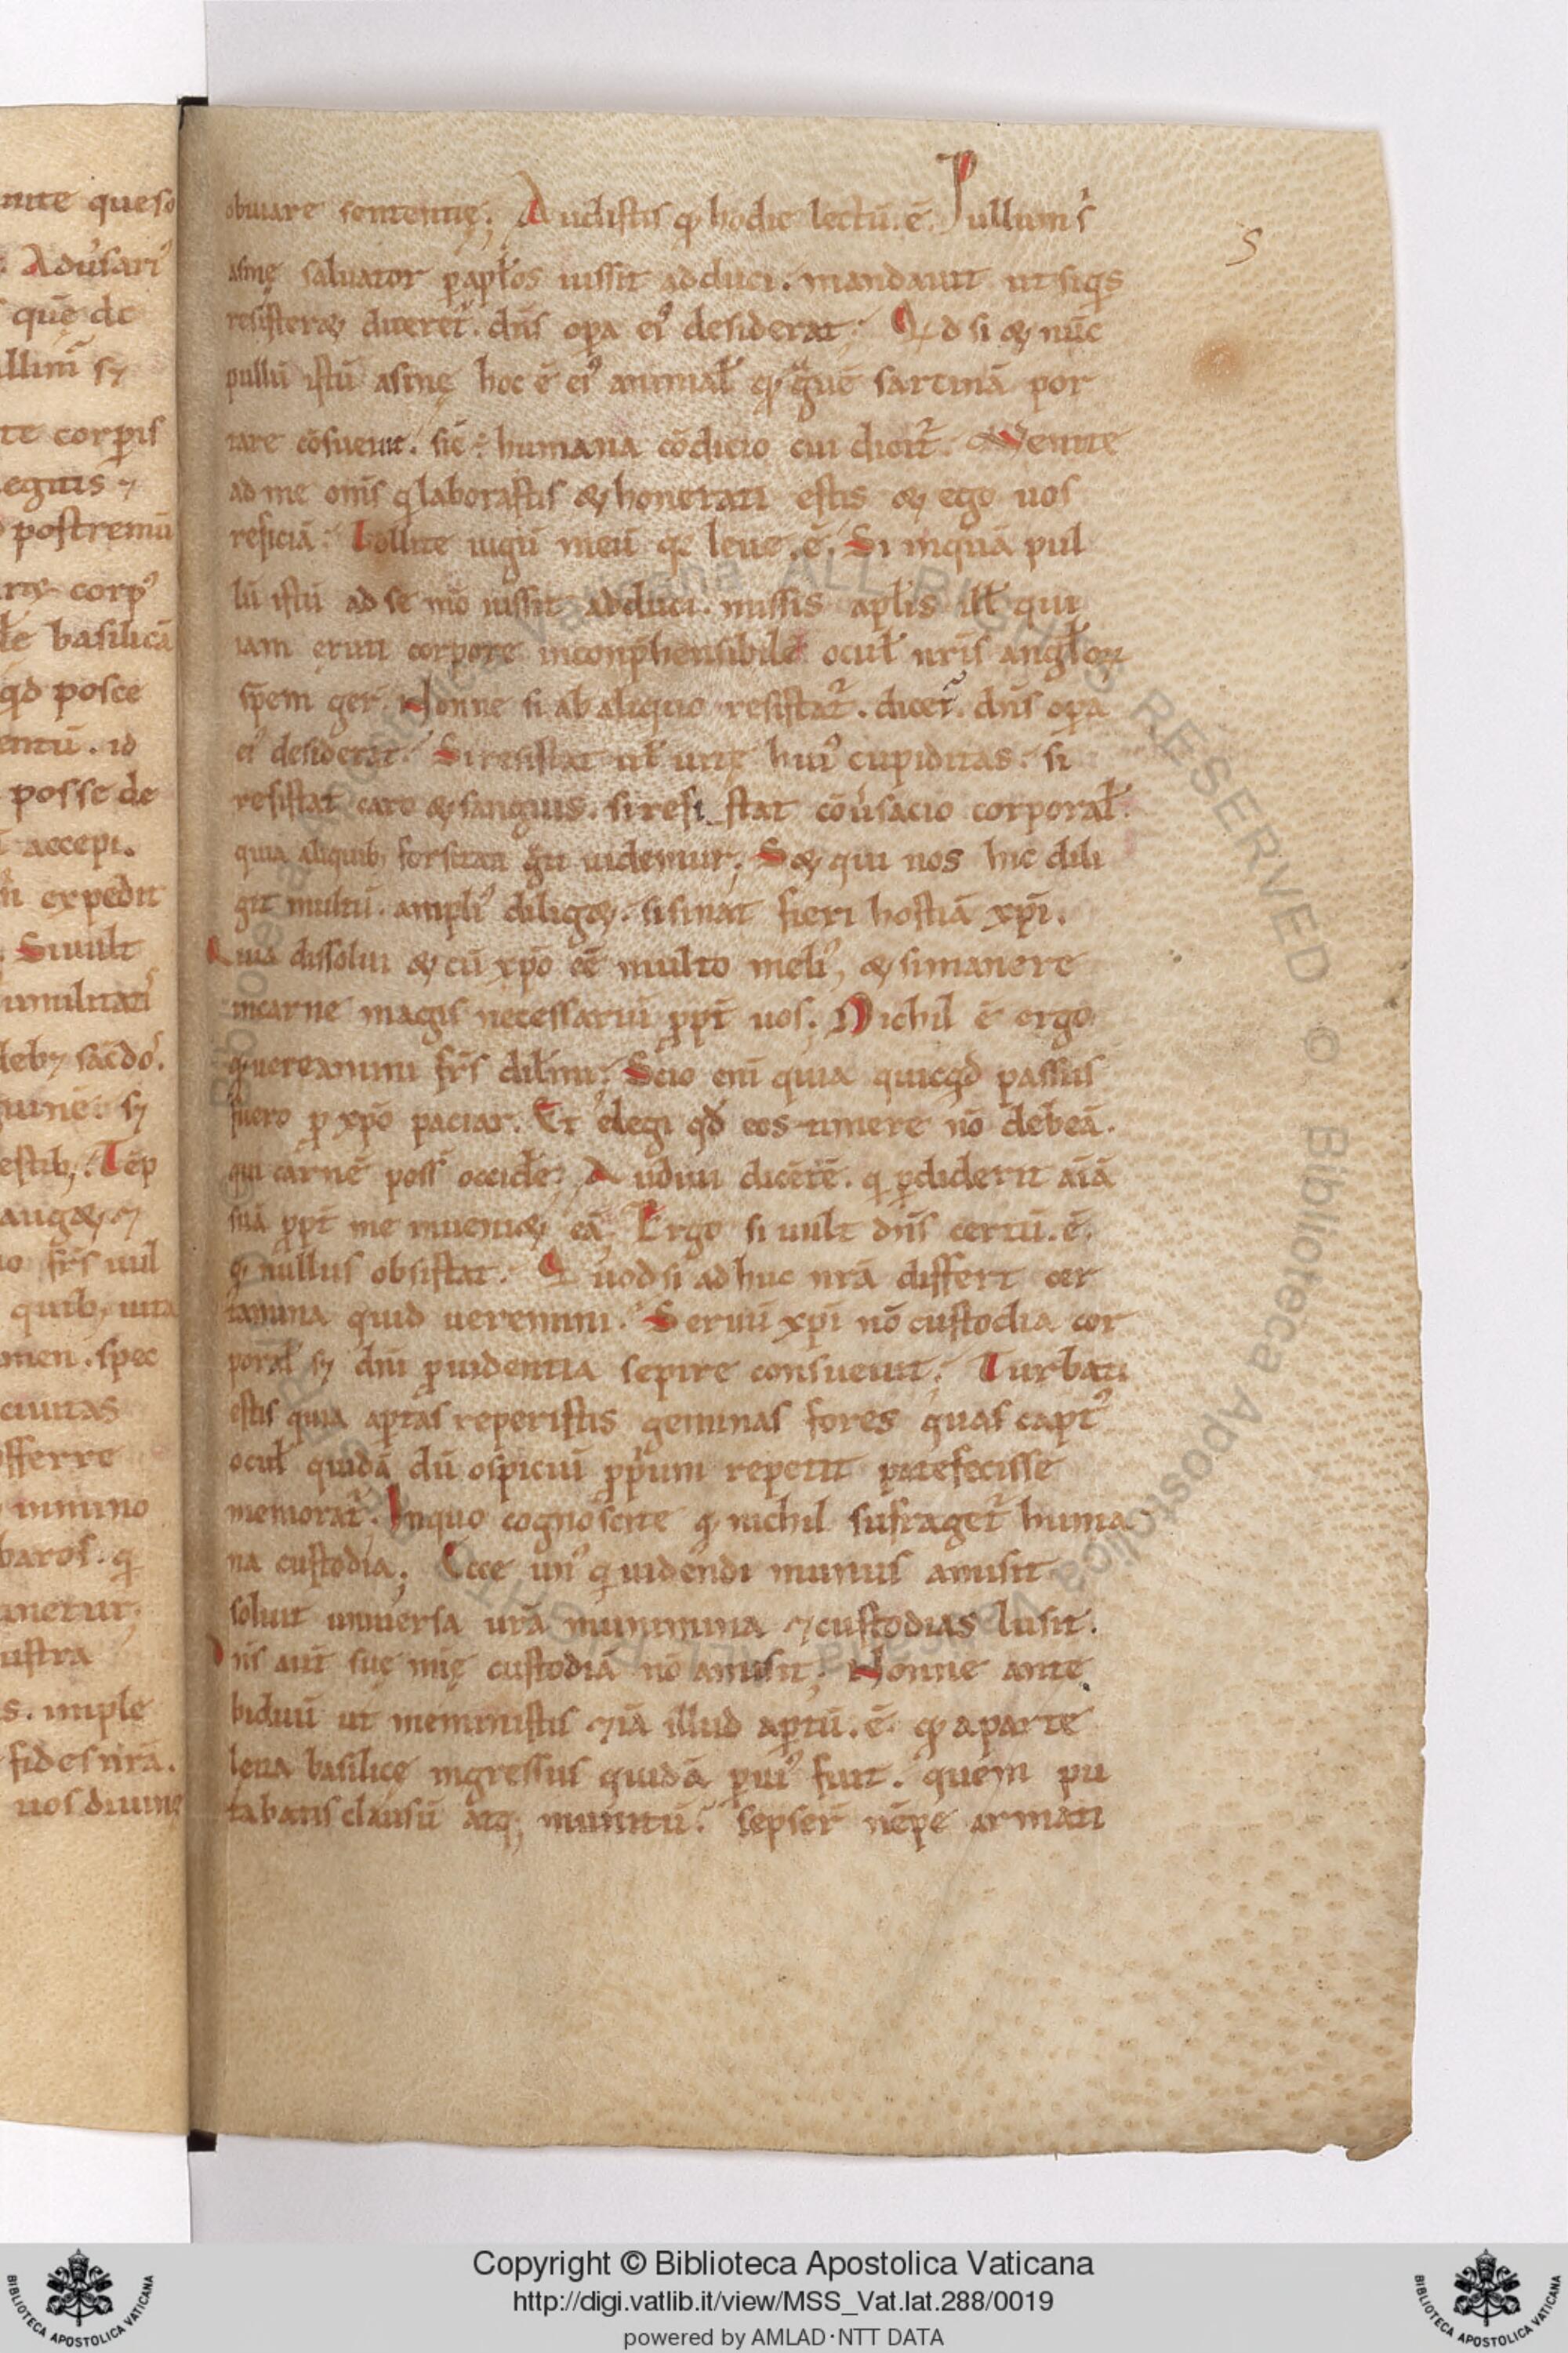 nite queso
Aduˀsariˀ
quę de
llimˀ s⁊
te corpˀis
eguis ⁊
postremū
corpˀ
basilicā
qd posce
entū. id
posse de
accepi.
expedit
Si uult
umilitati
leb⁊ sac̄do.
Tēp
aug&, ⁊
fr̄s uul
quib; uita
men. spec
ciuitas
fferre
minino
baros. q
netur,
ustra
s. imple
fides nr̄a.
uos diuinę
obuiare sententię; Audistis qđ hodie lectū. ē. Pullum s̄
5
asinę saluator p̱ apl̄os iussit adduci. mandauit ut siq̇s
resister& dicerēt. dn̄s op̱a eiˀ desiderat; Qđ si & nūc
pullū istū asinę hoc ē eiˀ animal̄ qđ g̊uē sarcinā por
tare cōsueuit. sic ē humana cōdicio cui dicit̄. Uenite
ad me om̄s q laborastis & honerati estis & ego uos
reficiā. Tollite iugū meū qa leue. ē. Si inquā pul
lū istū ad se m̊ iussit adduci. missis apl̄is ill̄ qui
iam eruti corpore inconp̱hensibilē ocul̄ nr̄is angl̄oꝝ
sp̄em ger̄. Nonne si ab aliquo resistat̄. dicet̄. dn̄s op̱a
eiˀ desiderat. Si resistat m̄ uitę huiˀ cupiditas. si
resistat caro & sanguis. si resi_stat cōuˀsacio corporal̄.
quia aliquib; forsitan g̊ti uidemur; S& qui nos hic dili
git multū. ampliˀ dilig&. si sinat fieri hostiā xp̄i.
Quia dissolui & cū xp̄o eē multo meliˀ, & si manere
in carne magis necessariū p̱pt̄ uos; Nichil ē ergo
qđ uereamini fr̄s dil̄mi; Scio eni quia quicqđ passus
fuero p̱ xp̄o paciar. Et elegi qđ eos timere nō debeā.
qui carnē poss̄ occidē; Audiui dicētē. q p̱diderit aīā
suā p̱pt̄ me inueni& eā; Ergo si uult dn̄s certū. ē,
qđ nullus obsistat. Quod si adhuc nr̄a differt cer
tamina quid ueremini. Seruū xp̄i nō custodia cor
poral̄ s⁊ dn̄i p̱uidentia sepire consueuit; Turbati
estis quia ap̱tas reperistis geminas fores quas captˀ
ocul̄ quidā dū ospiciū p̱p̱ium repetit patefecisse
memorat̄. Inquo cognoscite qđ nichil sufraget̄ huma
na custodia; Ecce unˀ q uidendi munus amisit
soluit uniuersa ur̄a munimina ⁊ custodias lusit.
Dn̄s aut̄ suę mię custodiā nō amisit; Nonne ante
biduū ut meministis ⁊iā illud ap̱tū. ē. qđ a parte
leua basilicę ingressus quidā p̱uiˀ fuit. quem pu
tabatis clausū atq; munitū. Sepser̄ nēpe armati
Copyright © Biblioteca Apostolica Vaticana
http://digi.vatlib.it/view/MSS_Vat.lat.288/0019
powered by AMLAD·NTT DATA